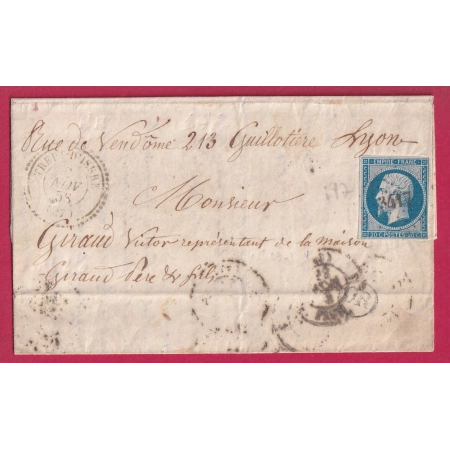 Rue de Vendôme 213 Guillotière Lyon
EMPIRE FRANC.
20 C. POSTES 20 C.
NOV
58
Monsieur
Giraud Victor représentant de la maison
Giraud Père & fils